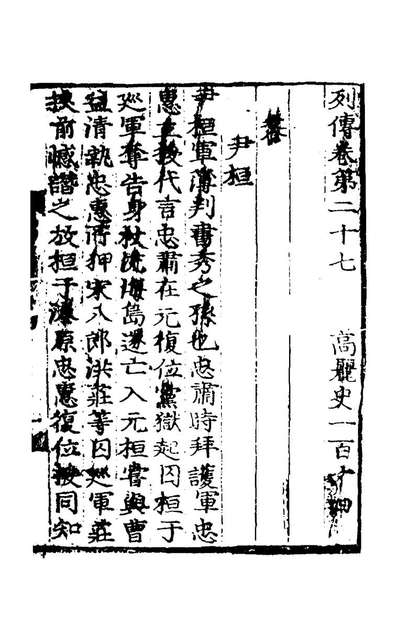 列傳卷第二十七 高麗史一百十四
尹桓
尹桓軍簿判書秀之孫也忠肅時拜護軍忠
惠立授代言忠肅在元復位黨獄起囚桓于
巡軍奪告身杖流海島遂亡入元桓嘗與曹
益清執忠惠所狎宋八郎洪莊等囚巡軍莊
挾前憾譖之放桓于漆原忠惠復位授同知